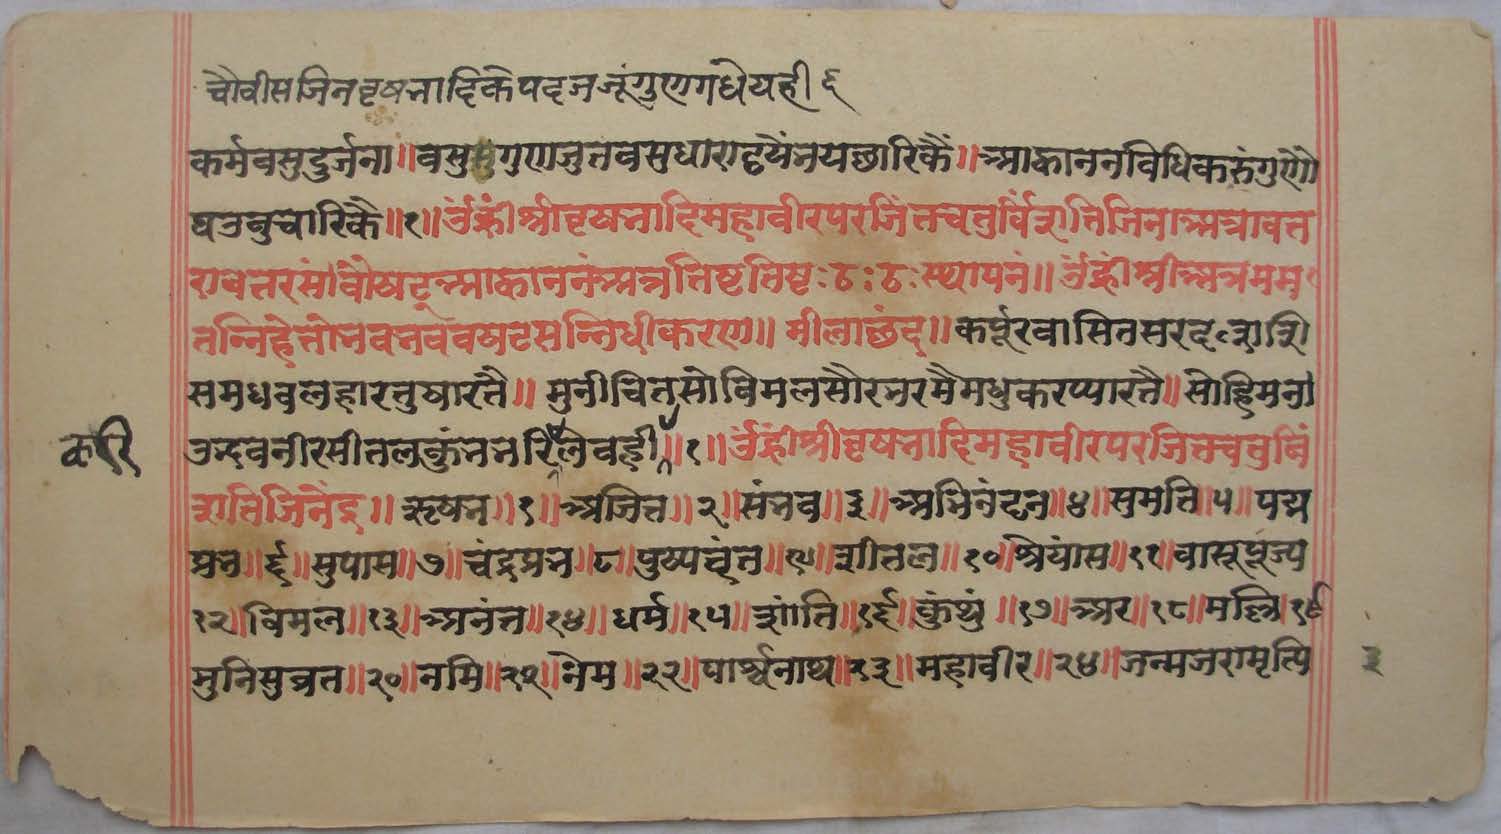 चौवीसजिनवृषभादिके पदजजूं गुणगधेयही ६
कर्मवसुदुर्जना॥ वसुसुगुणजुतवसुधाराद्दयैंभयछारिकैं॥ आकाननविधिकरुंगुणौ
घउबुचारिकै॥१॥ ॐह्रीं श्रीवृषभादिमहावीरपरजिंतचतुर्विंशतिजिनाअत्रावत
रावतरसंवौषट्आकाननंअत्रतिष्टतिष्ट:ठ:ठ:स्थापनं॥ ॐह्रीं श्रीअत्रमम
तन्निहेतोभवभववषटसन्निधीकरण॥ मीलाछंद॥ कर्पूरवासितसरद शशि
समधवलहारतुषारतै॥ मुनीचितसोविमलसौरभरमैमधुकरप्पारतै॥ सोहिमनी
करि
उद्भवनीरसीतलकुंभभरिलेवही॥१॥ ॐह्रीं श्रीवृषभादिमहावीरपरजितचतुविं
शतिजिनेंद्र॥ ऋषभ॥१॥ अजित॥२॥ संभव॥३॥ अभिनंदन॥४॥ सुमति॥५॥ पद्म
प्रभ॥६॥ सुपास॥७॥ चंद्रप्रभ॥८॥ पुष्पदंत॥९॥ शीतल॥१०॥ श्रियांस॥११॥ वासूपूज्य
१२॥ विमल॥१३॥ अनंत॥१४॥ धर्म॥१५॥ शांति॥१६॥ कुंथुं॥१७॥ अर॥१८॥ मल्लि॥१९
मुनिसुव्रत॥२०॥ नमि॥२१॥ नेम॥२२॥ पार्श्वनाथ॥२३॥ महावीर॥२४॥ जन्मजरामृत्पि
३